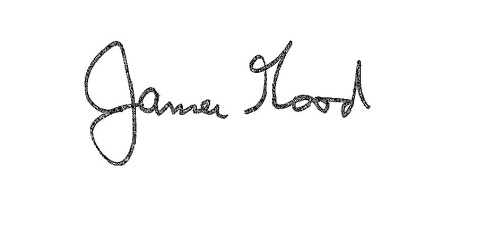 James Hood